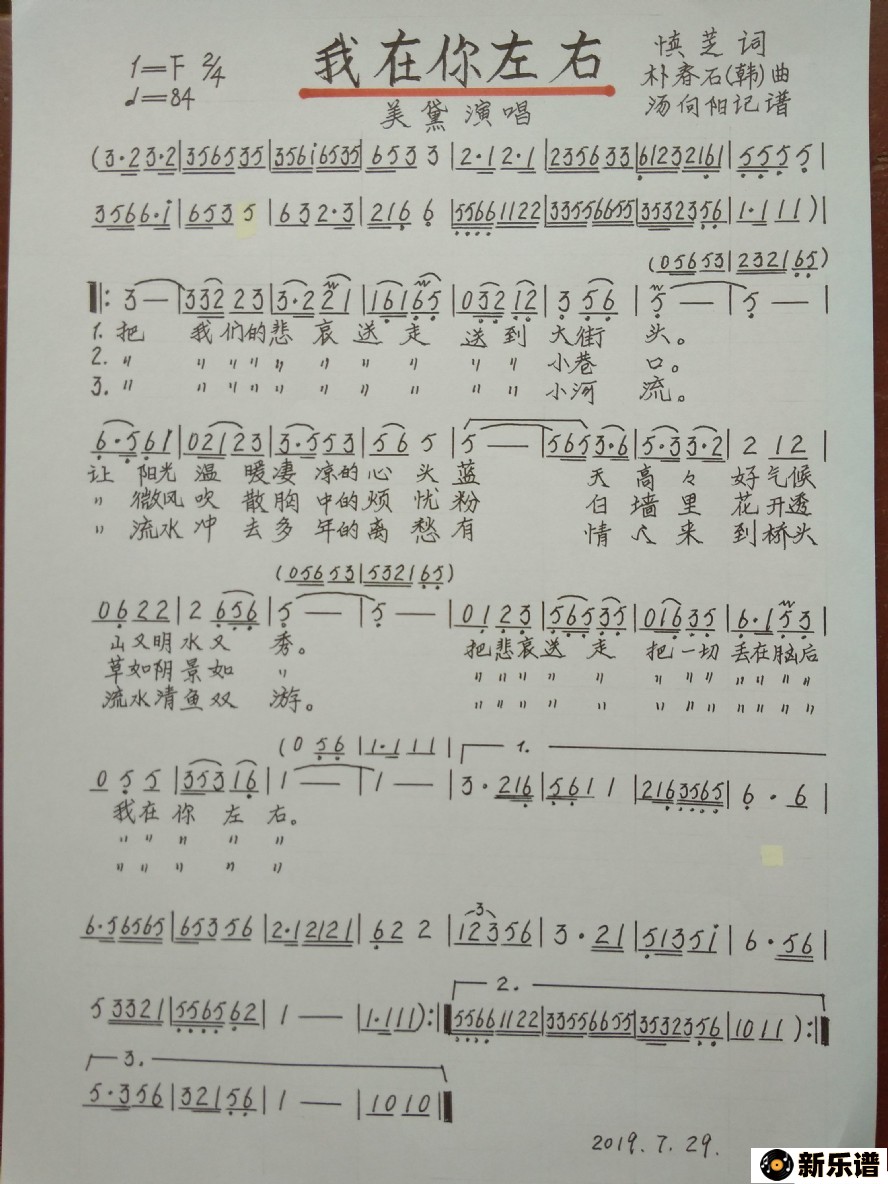 我在你左右
1=F 2/4
♩=84
美黛演唱
慎芝词
朴春石(韩)曲
汤向阳记谱
(3·2 3·2|356535|3561̇6535|653 3|2·1 2·1|235633|61232161|5555|
3566·1̇|6535|632·3|2166|55661122|33556655|3532356|1·111)|
(05653|232165)
‖:3—|33223|3·221|16165|03212|356|5—|5—|
1.把 我们的悲哀送走 送到大街头。
2.〃 〃〃〃〃〃〃〃 〃〃小巷口。
3.〃 〃〃〃〃〃〃〃 〃〃小河流。
6·561|02123|3·553|565|5—|5653·6|5·33·2|212|
让阳光温暖凄凉的心头蓝 天高々好气候
〃微风吹散胸中的烦忧粉 白墙里花开透
〃流水冲去多年的离愁有 情人来到桥头
(05653|532165)
0622|2656|5—|5—|0123|56535|01635|6·153|
山又明水又秀。 把悲哀送走 把一切丢在脑后
草如阴景如〃 〃〃〃〃〃 〃〃〃〃〃〃〃
流水清鱼双游。 〃〃〃〃〃 〃〃〃〃〃〃〃
(056|1·111| 1.
055|35316|1—|1—|3·216|5611|2163565|6·6|
我在你左右。
〃〃〃〃〃
〃〃〃〃〃
6·56565|65356|2·12121|622|12356|3·21|51351̇|6·56|
3
2.
53321|556562|1—|1·111):‖55661122|33556655|3532356|1011):‖
3.
5·356|32156|1—|1010‖
2019.7.29.
新乐谱